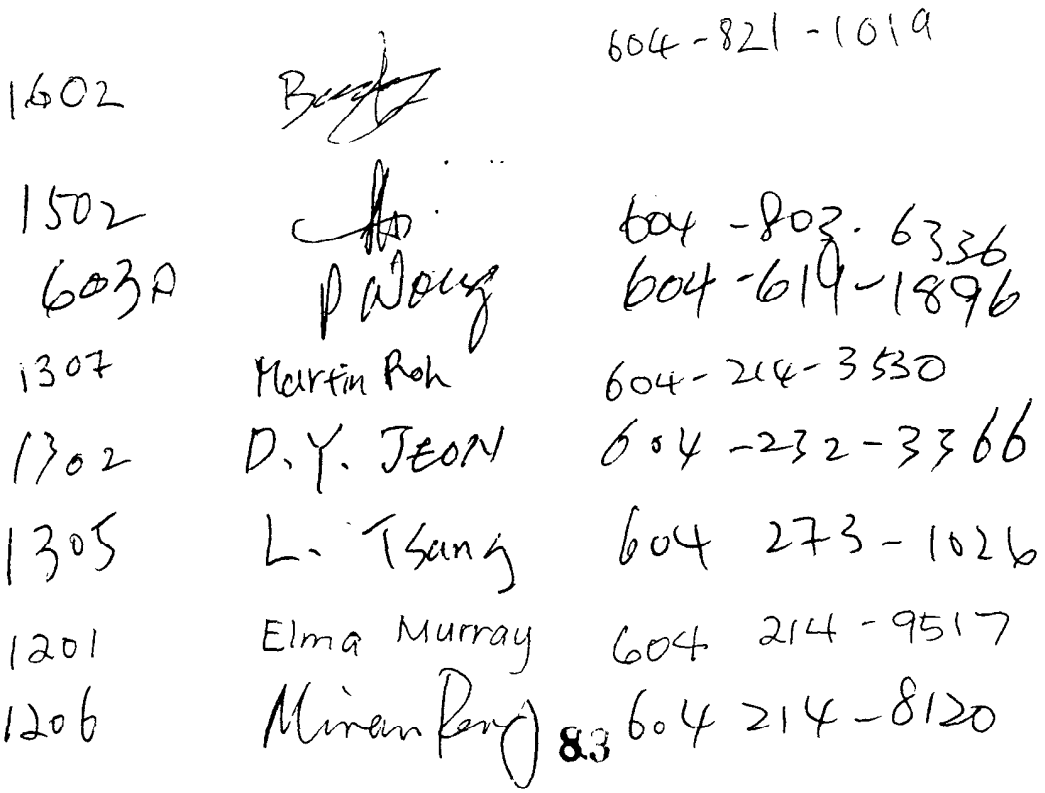 604-821-1019
1602
1502 604-803-6336
603A P Wong 604-619-1896
1307 Martin Roh 604-214-3530
1302 D.Y. JEON 604-232-3366
1305 L. Tsang 604 273-1026
1201 Elma Murray 604 214-9517
1206 604 214-8120
83